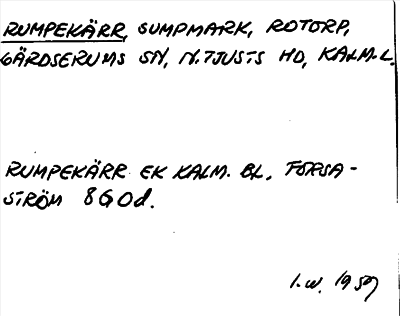 RUMPEKÄRR, SUMPMARK, ROTORP,
GÄRDSERUMS SN, N.TJUSTS HD, KALM.L.
RUMPEKÄRR EK KALM. BL. FORSA-
STRÖM 8G0d.
I.W. 1959